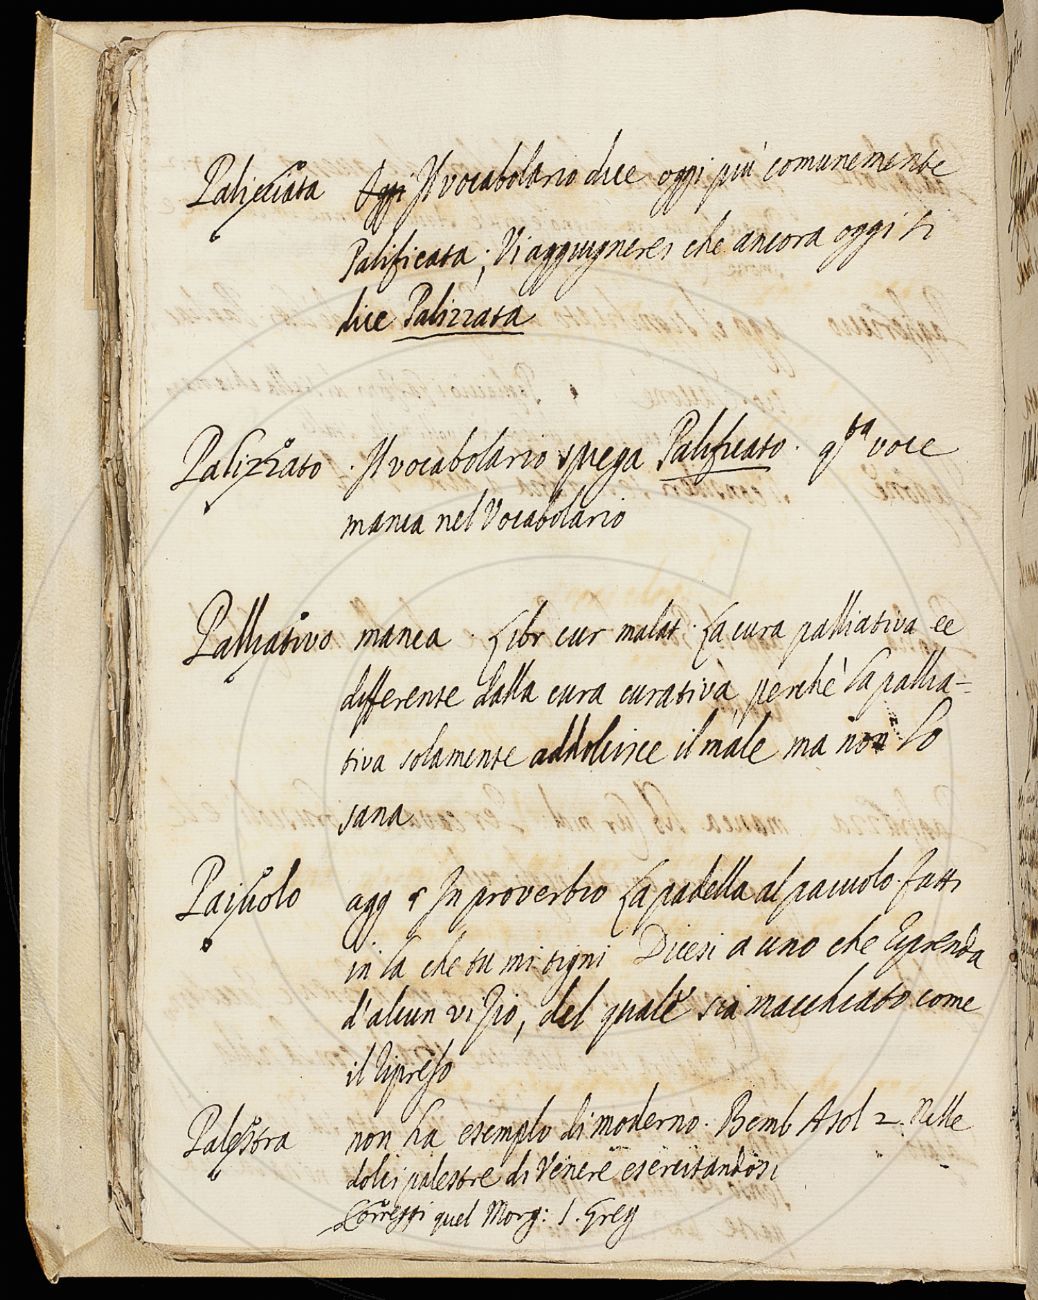 Palicciata Oggi Il vocabolario dice oggi più comunemente
Palificata; Vi aggiugnerei che ancora oggi si
dice Palizzata
Palizzato. Il vocabolario spiega Palificato. q.ta voce
manca nel Vocabolario
Palliativo manca. Libr cur malat. La cura palliativa ee
differente dalla cura curativa, perchè la pallia=
tiva solamente addolcisce il male ma non lo
sana
Paiuolo agg § In proverbio La padella al paiuolo. fatti
in là che tu mi tigni Dicesi a uno che riprenda
d'alcun vizio, del quale sia macchiato come
il ripreso
Palestra non ha esemplo di moderno. Bemb Asol 2. Nelle
dolci palestre di Venere esercitandosi
Correggi quel Morg: S. Greg